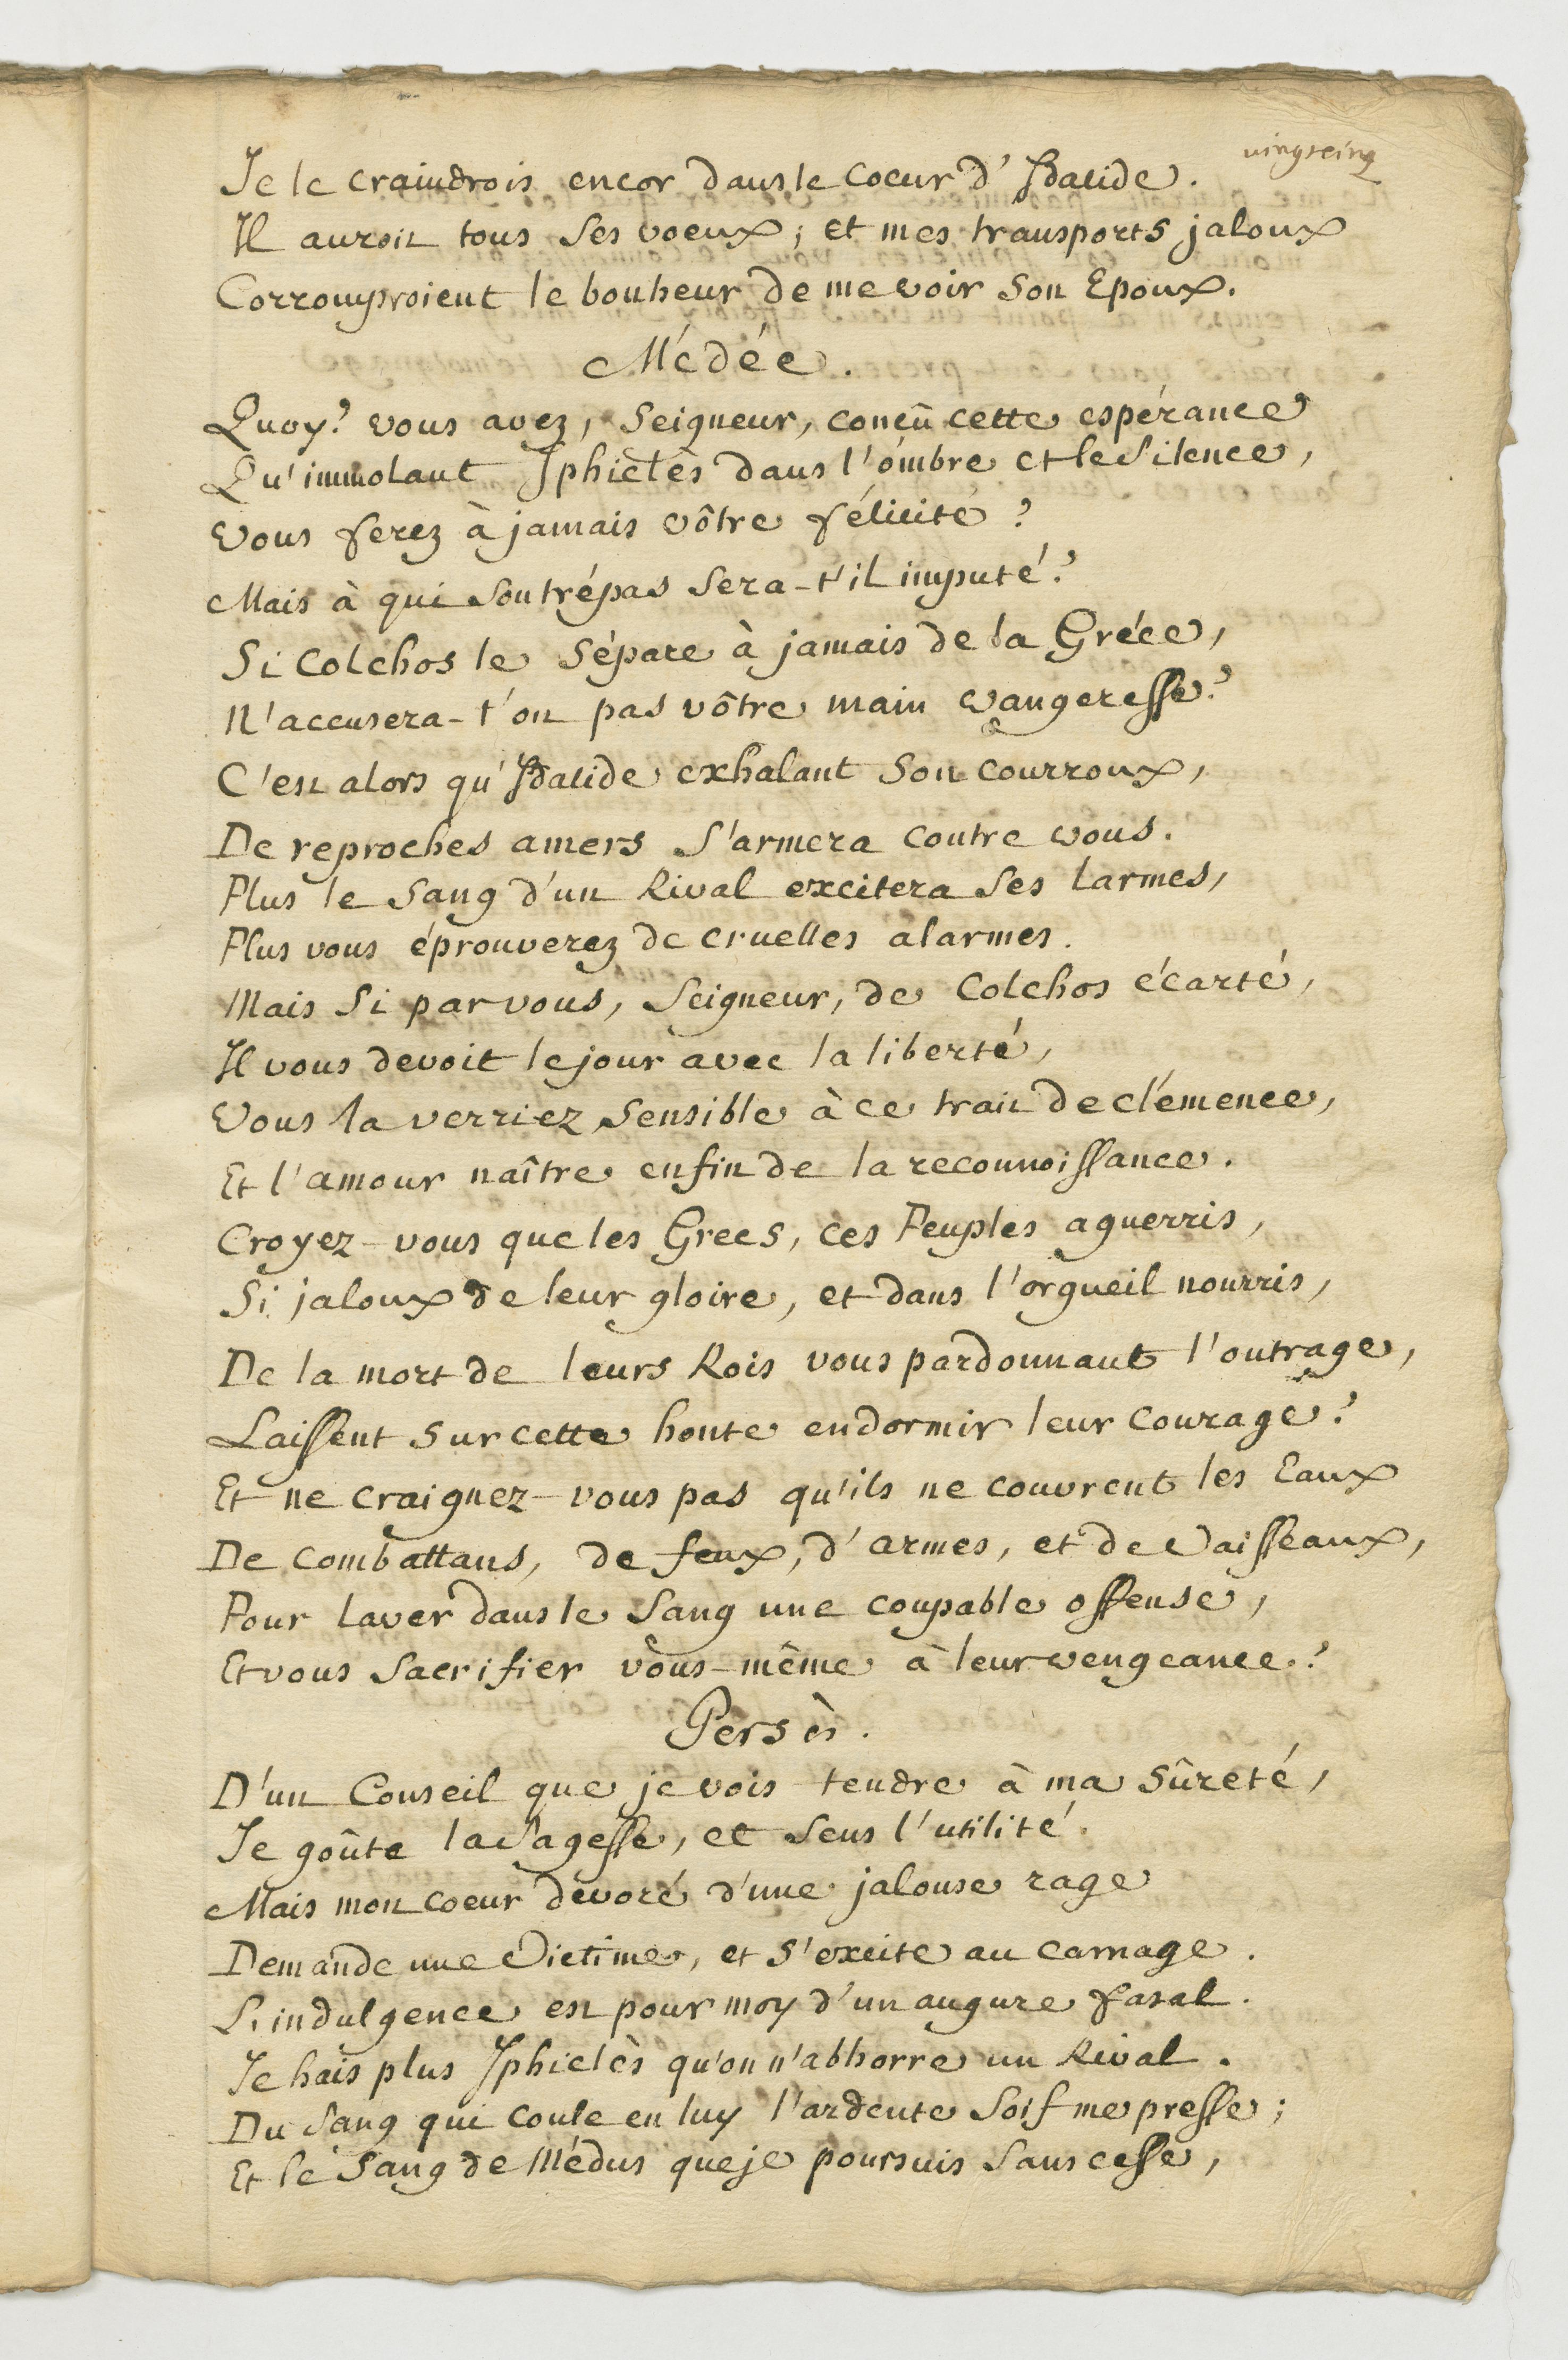 vingtcinq
Je le craindrois encor dans le coeur d'Idalide.
Il auroit tous ses voeux; et mes transports jaloux
Corromproient le bonheur de me voir son Epoux.
Médée.
Quoy? vous avez, Seigneur, conçû cette espérance
Qu'immolant Iphiclès dans l'ombre et le Silence,
Vous ferez à jamais vôtre félicité?
Mais à qui son trépas sera-t'il imputé?
Si Colchos le sépare à jamais de la Gréce,
N'accusera-t'on pas vôtre main vangeresse?
C'est alors qu'Idalide exhalant son courroux,
De reproches amers s'armera contre vous.
Plus le sang d'un Rival excitera ses larmes,
Plus vous éprouverez de cruelles alarmes.
Mais si par vous, Seigneur, de Colchos écarté,
Il vous devoit le jour avec la liberté,
Vous la verriez sensible à ce trait de clémence,
Et l'amour naître enfin de la reconnoissance.
Croyez-vous que les Grecs, ces Peuples aguerris,
Si jaloux de leur gloire, et dans l'orgueil nourris,
De la mort de leurs Rois vous pardonnant l'outrage,
Laissent sur cette honte endormir leur courage?
Et ne craignez-vous pas qu'ils ne couvrent les Eaux
De combattans, de feux, d'armes, et de Vaisseaux,
Pour laver dans le sang une coupable offense,
Et vous sacrifier vous-même à leur vengeance?
Persès.
D'un Conseil que je vois tendre à ma sûreté,
Je goûte la sagesse, et sens l'utilité.
Mais mon coeur dévoré d'une jalouse rage
Demande une Victime, et s'excite au carnage.
L'indulgence est pour moy d'un augure fatal.
Je hais plus Iphiclès qu'on n'abhorre un Rival.
Du sang qui coule en luy l'ardente soif me presse;
Et le sang de Médus que je poursuis sans cesse,